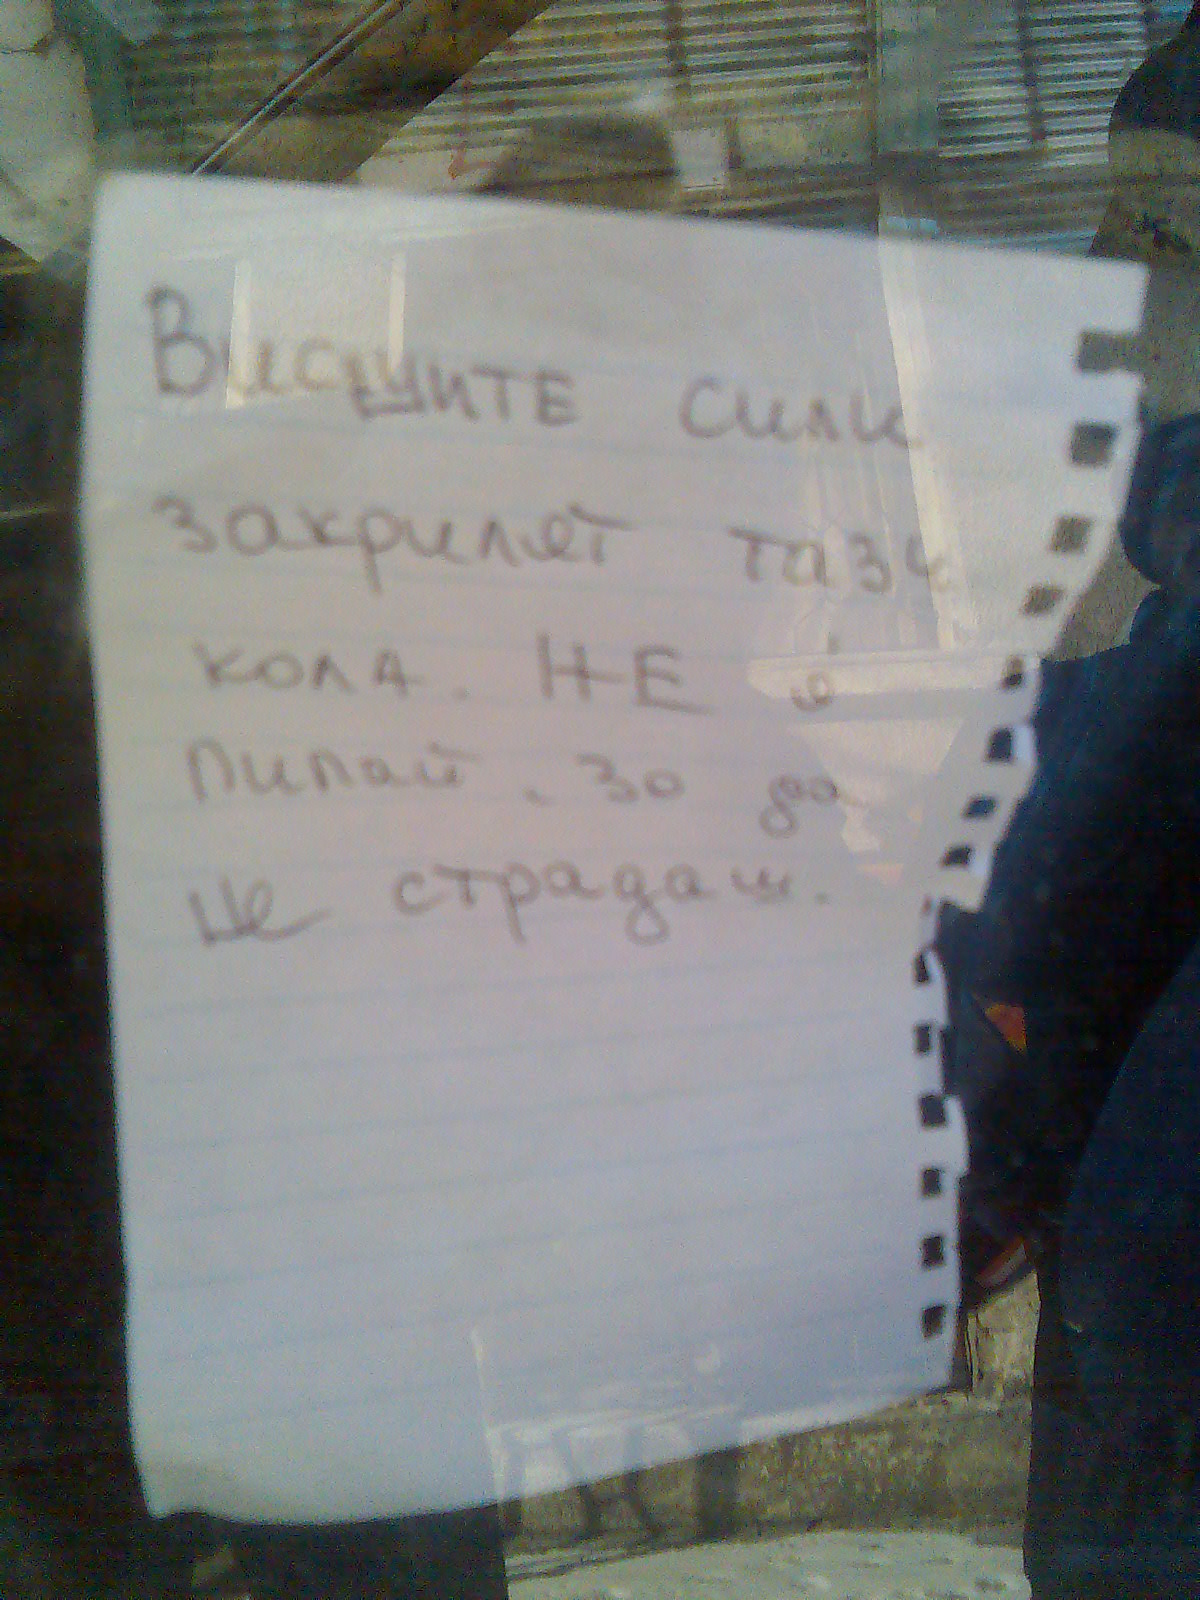 Висшите сили
закрилят тази
кола. НЕ я
пипай. За да
не страдаш.